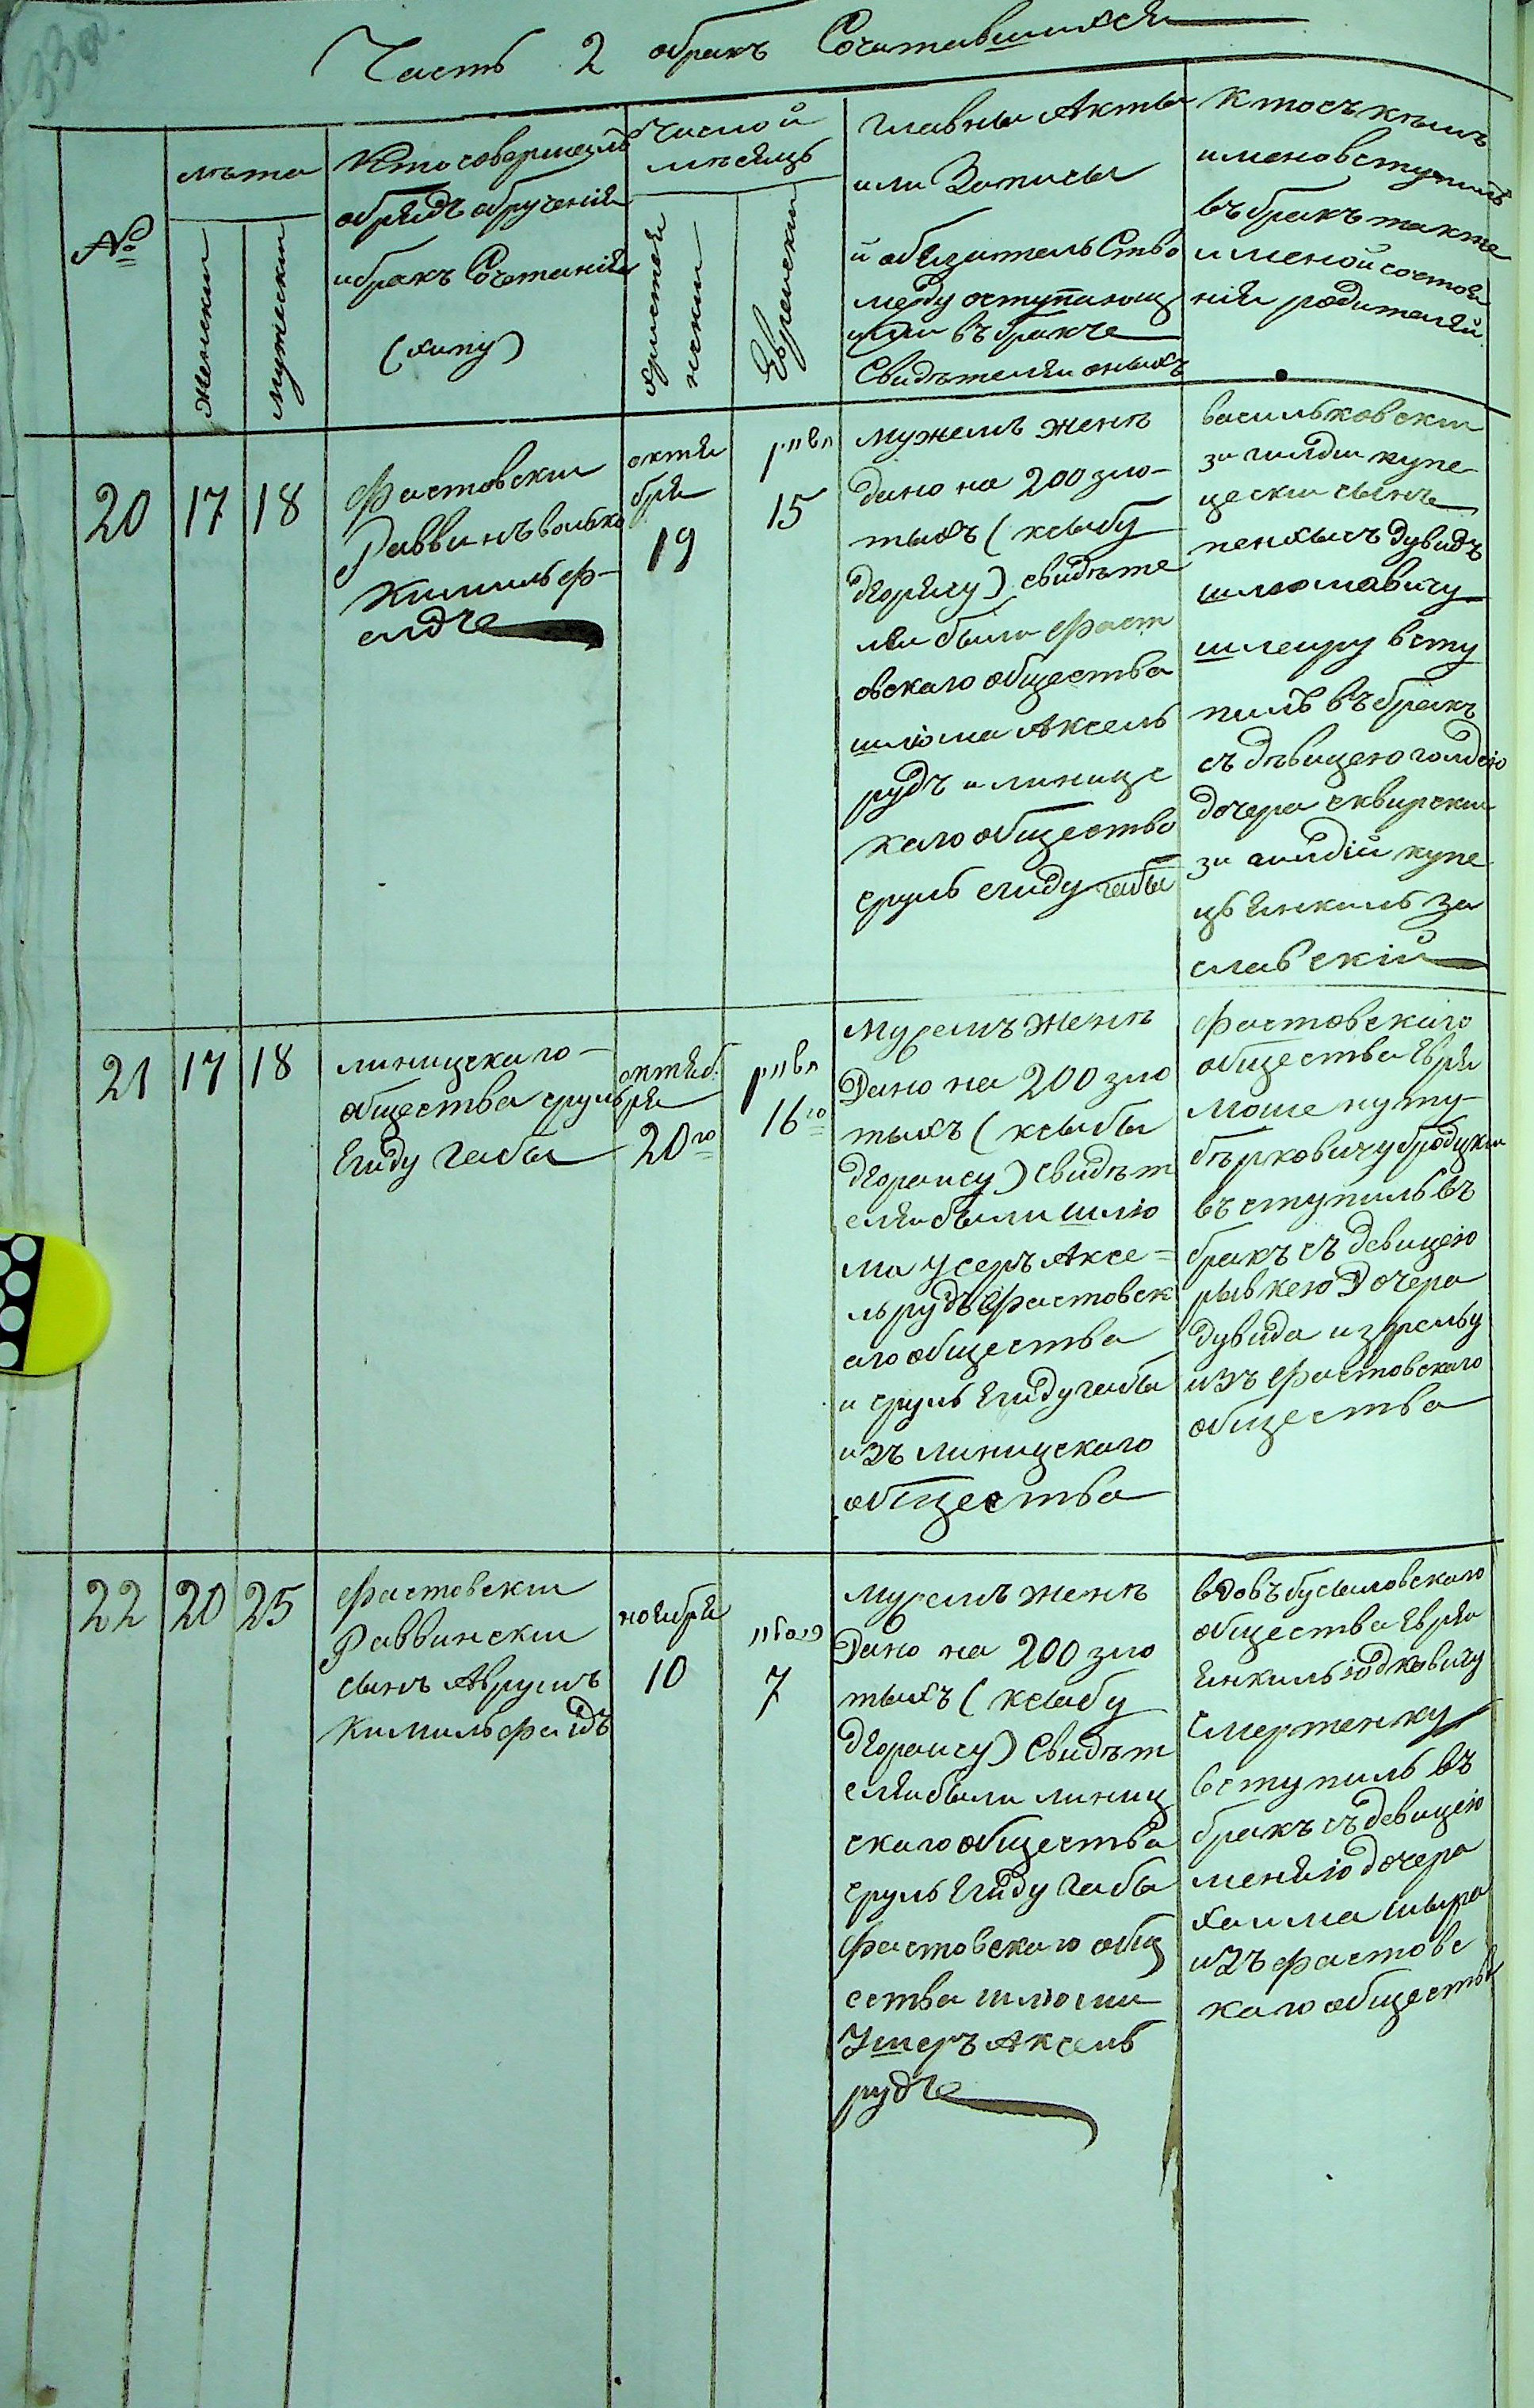 Часть 2 обракъ Сочитавшихся
№
лѣта
Женски
мужески
Кто совершилъ
обрядъ обрученія
ибракъ Сочетанія
(хипу)
Число и
мѣсяцъ
христія
нски
Еврейски
главны Акты
или Записы
и обязательство
между вступающ
ими въ браче
Свидѣтеляи оныхъ
Кто съ кѣмъ
имено вступилъ
въ бракъ такте
и мено и состоя
нія родителяй
20
17
18
Фастовски
Раввинъ волько
Кимильф-
елдъ
октя
бря
19
15
мужемъ женѣ
дано на 200 зло-
тыхъ (ксыбу
дѣоряйсу) свидѣте
ляи было фаст
овскаго общества
шлiома Аксель
рудъ и линицс
каго общества
сруль егиду габы
васильковски
зи гилди купе
цески сынъ
пенхысъ дувидъ
шлюмавичу
шлеиру всту
пилъ въ бракъ
съ дѣвицею голдою
дочера сквирски
зи гилдiи купе
цъ Янкиль за
славскiи
21
17
18
линицскаго
общества сруль
Егиду габы
октяб
ря
20го
16го
мужемъ женѣ
Дано на 200 зло
тыхъ (ксыбы
дѣорайсу) свидѣт
еляибыли шлiо
ма Усеръ Аксе=
льрудъ Фастовск
аго общества
и сруль Егиду габы
изъ линицскаго
общества
Фастовскаго
общества Еврея
Моше нуту
бѣрковичу бродцки
въступилъ въ
бракъ съ девицею
рывкею Дочера
дувида изральу
изъ фастовскаго
общества
22
20
25
Фастовски
Раввински
сынъ Аврумъ
Кимильфилдъ
ноября
10
7
мужемъ женѣ
Дано на 200 зло
тыхъ (ксыбу
дѣорайсу) Свидѣт
еляибыли линиц
скаго общества
сруль Егиду габы
Фастовскаго общ
ества шлюма
Ушеръ Аксель
рудъ
вдовъ бусыловскаго
общества Еврея
Янкиль iодковичу
Смертенку
вступилъ въ
бракъ съ девицею
менѣю дочера
хаима шыра
изъ фастовс
каго общества